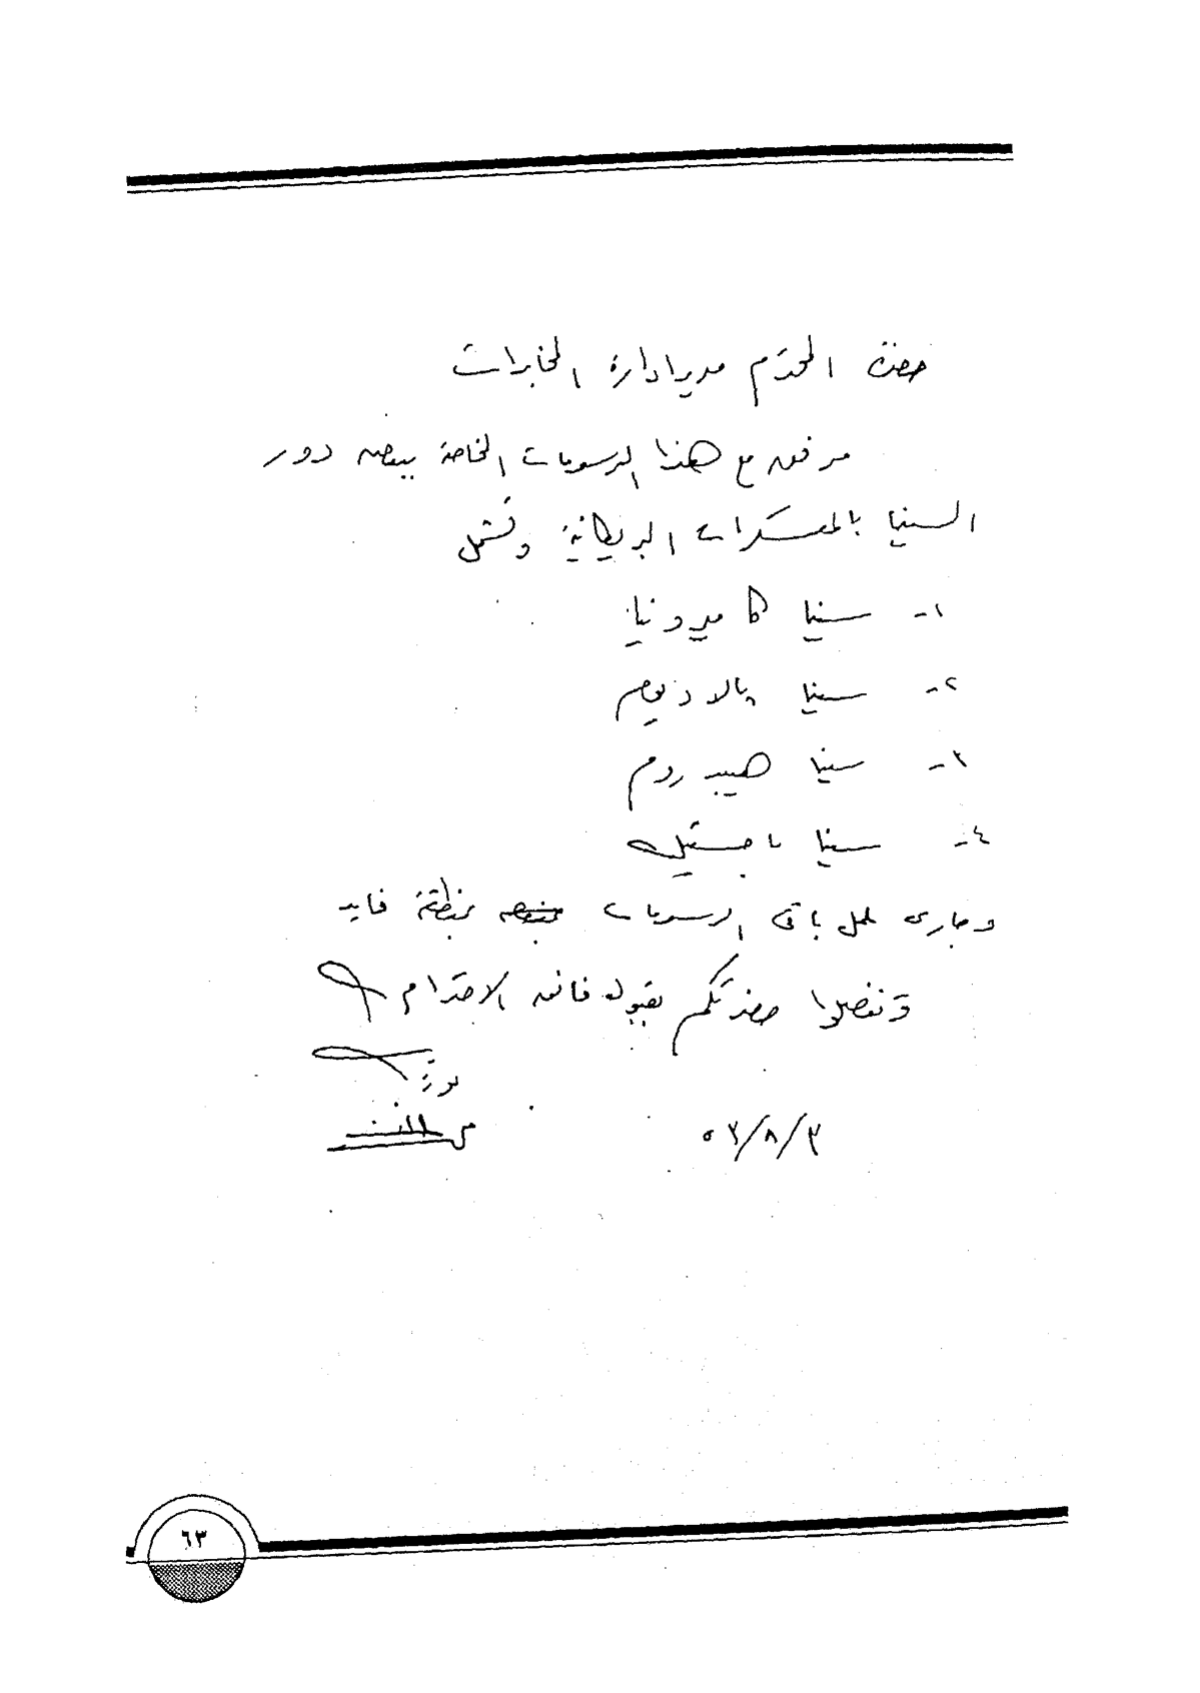 حضرة المحترم مدير ادارة المخابرات
مرفق مع هذا الرسومات الخاصة ببعض دور
السينما بالمعسكرات البريطانية وتشمل
١- سينما كاميرونيا
٢- سينما پالاديوم
٣- سينما هيبدروم
٤- سينما ماجستيك
وجارى عمل باقى الرسومات بمنطقة فايد
وتفضلوا حضرتكم بقبول فائق الاحترام
٥٣/٨/٣
٦٣